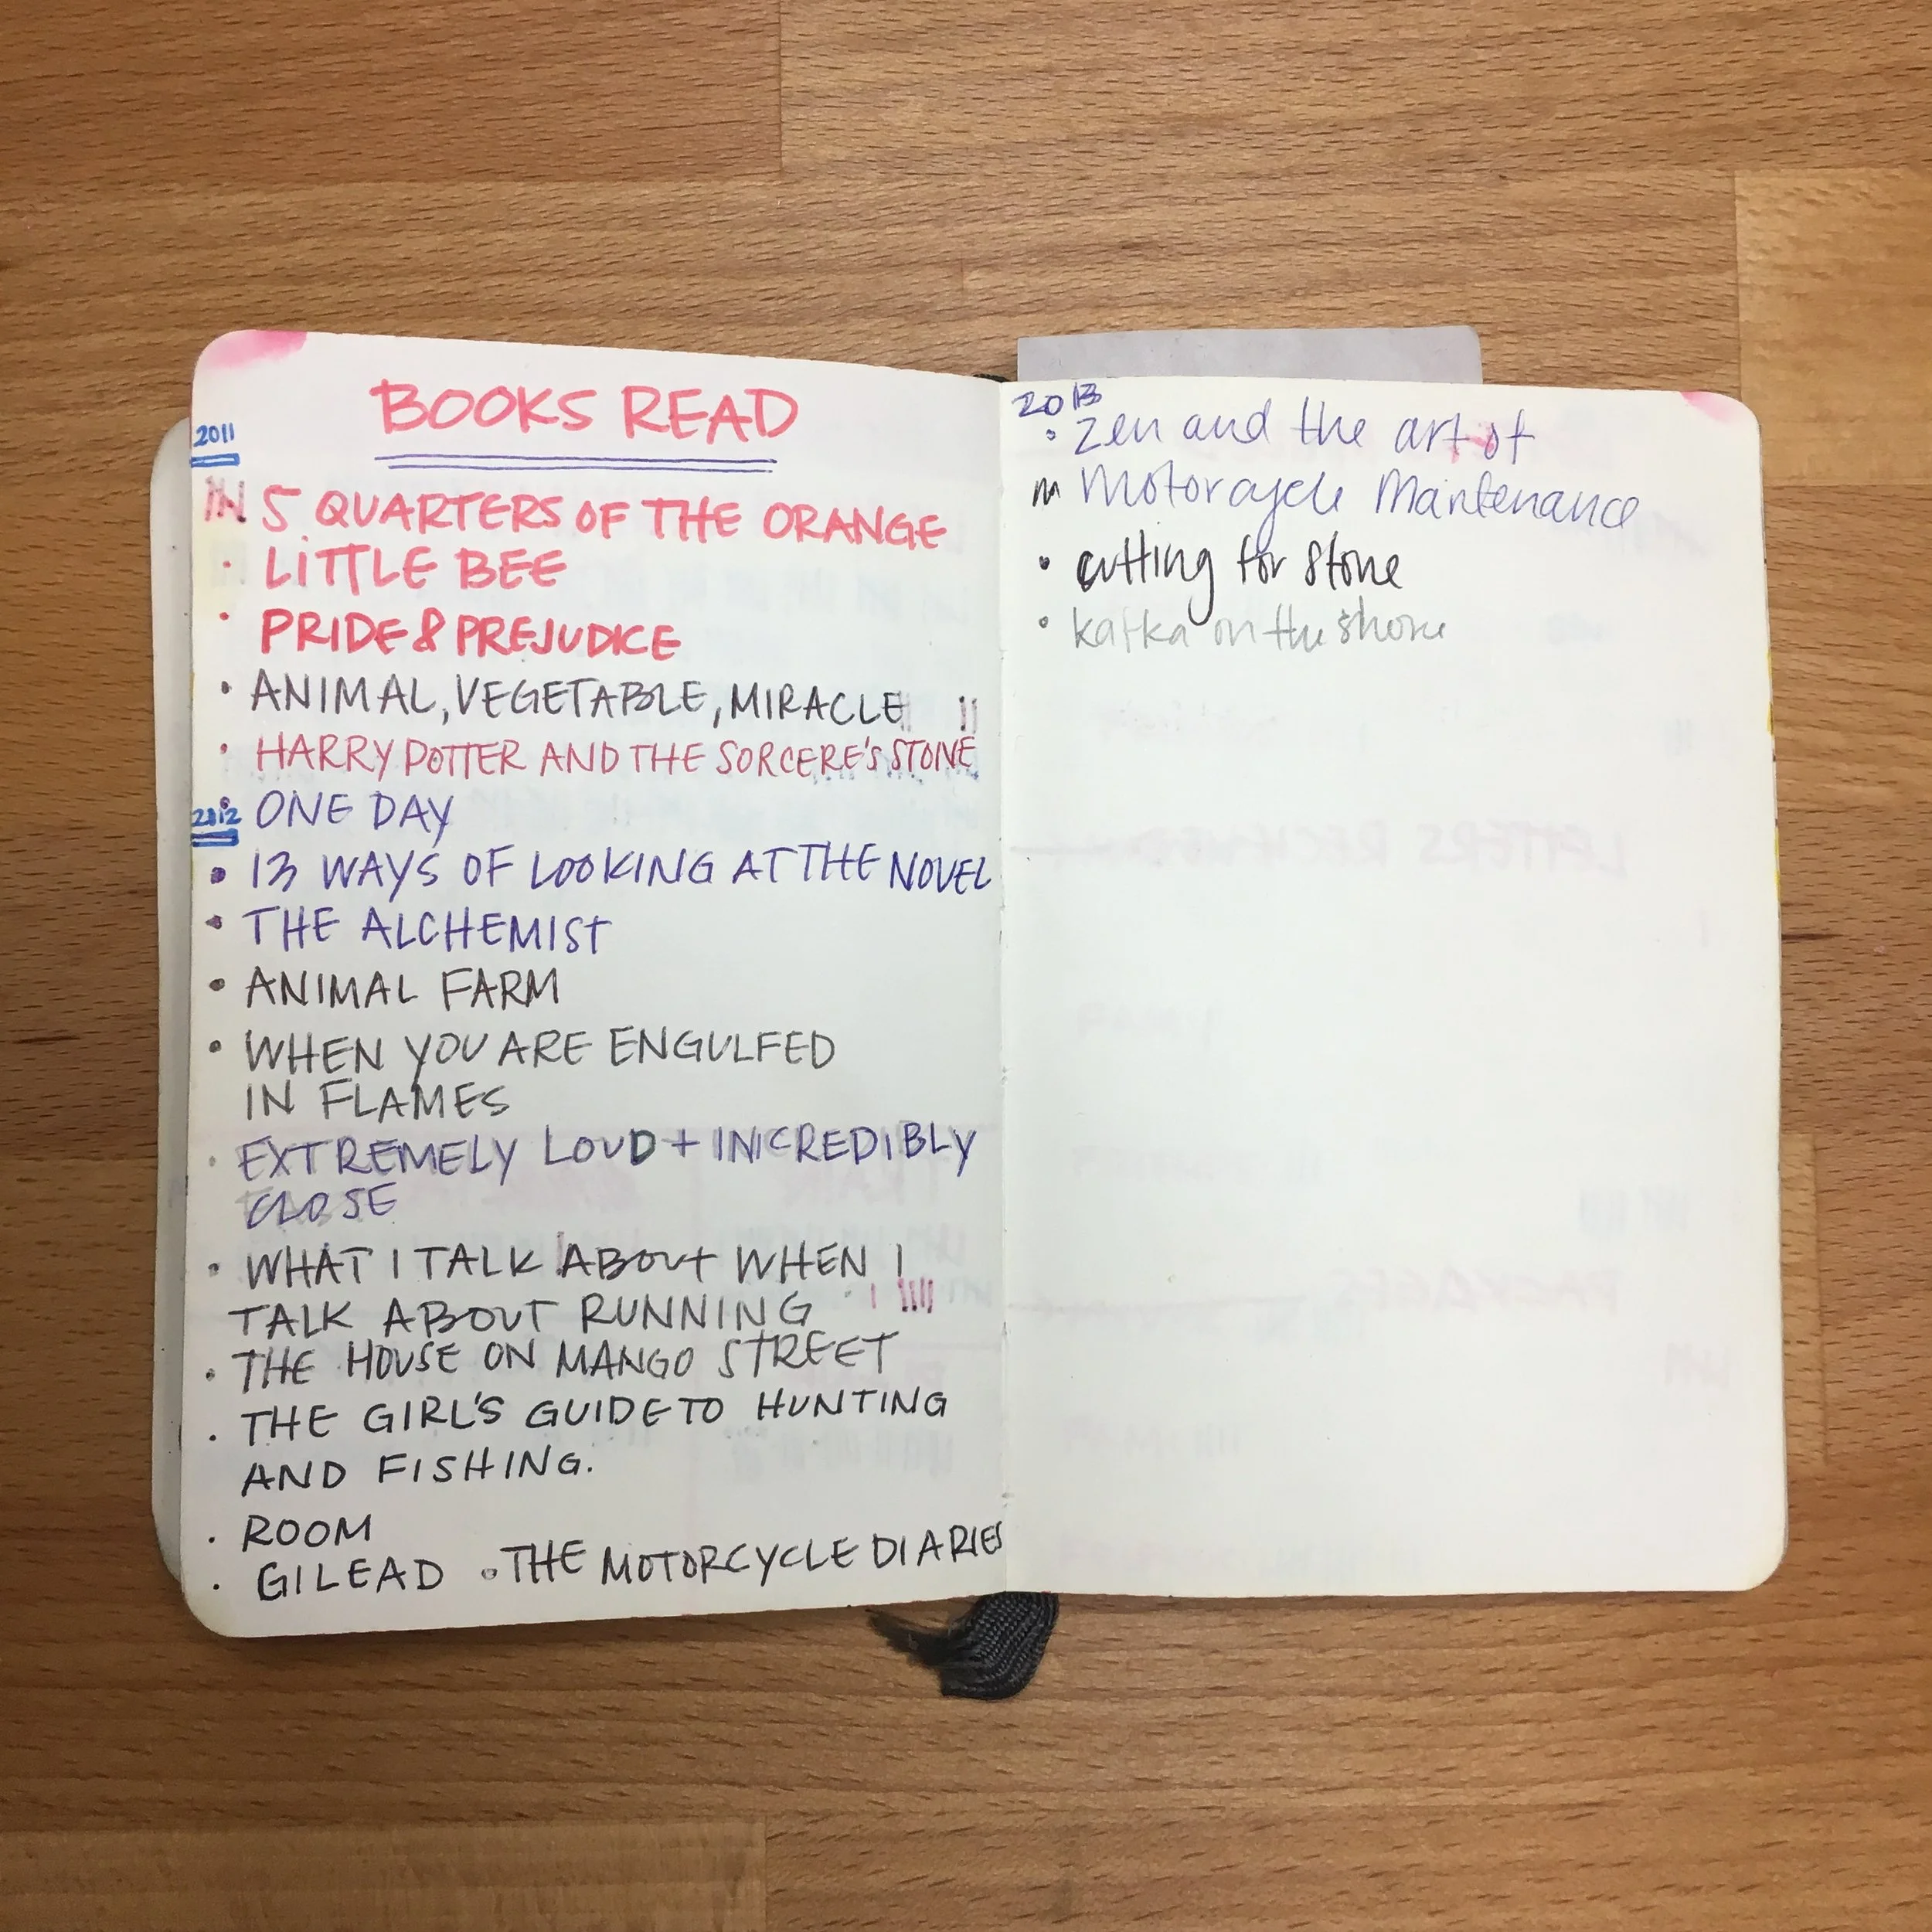 BOOKS READ
2011
5 QUARTERS OF THE ORANGE
• LITTLE BEE
• PRIDE & PREJUDICE
• ANIMAL, VEGETABLE, MIRACLE
• HARRY POTTER AND THE SORCERE'S STONE
2012
• ONE DAY
• 13 WAYS OF LOOKING AT THE NOVEL
• THE ALCHEMIST
• ANIMAL FARM
• WHEN YOU ARE ENGULFED
IN FLAMES
• EXTREMELY LOUD + INCREDIBLY
CLOSE
• WHAT I TALK ABOUT WHEN I
TALK ABOUT RUNNING
• THE HOUSE ON MANGO STREET
• THE GIRL'S GUIDE TO HUNTING
AND FISHING.
• ROOM
• GILEAD • THE MOTORCYCLE DIARIES
2013
• Zen and the art of
Motorcycle Maintenance
• cutting for stone
• kafka on the shore